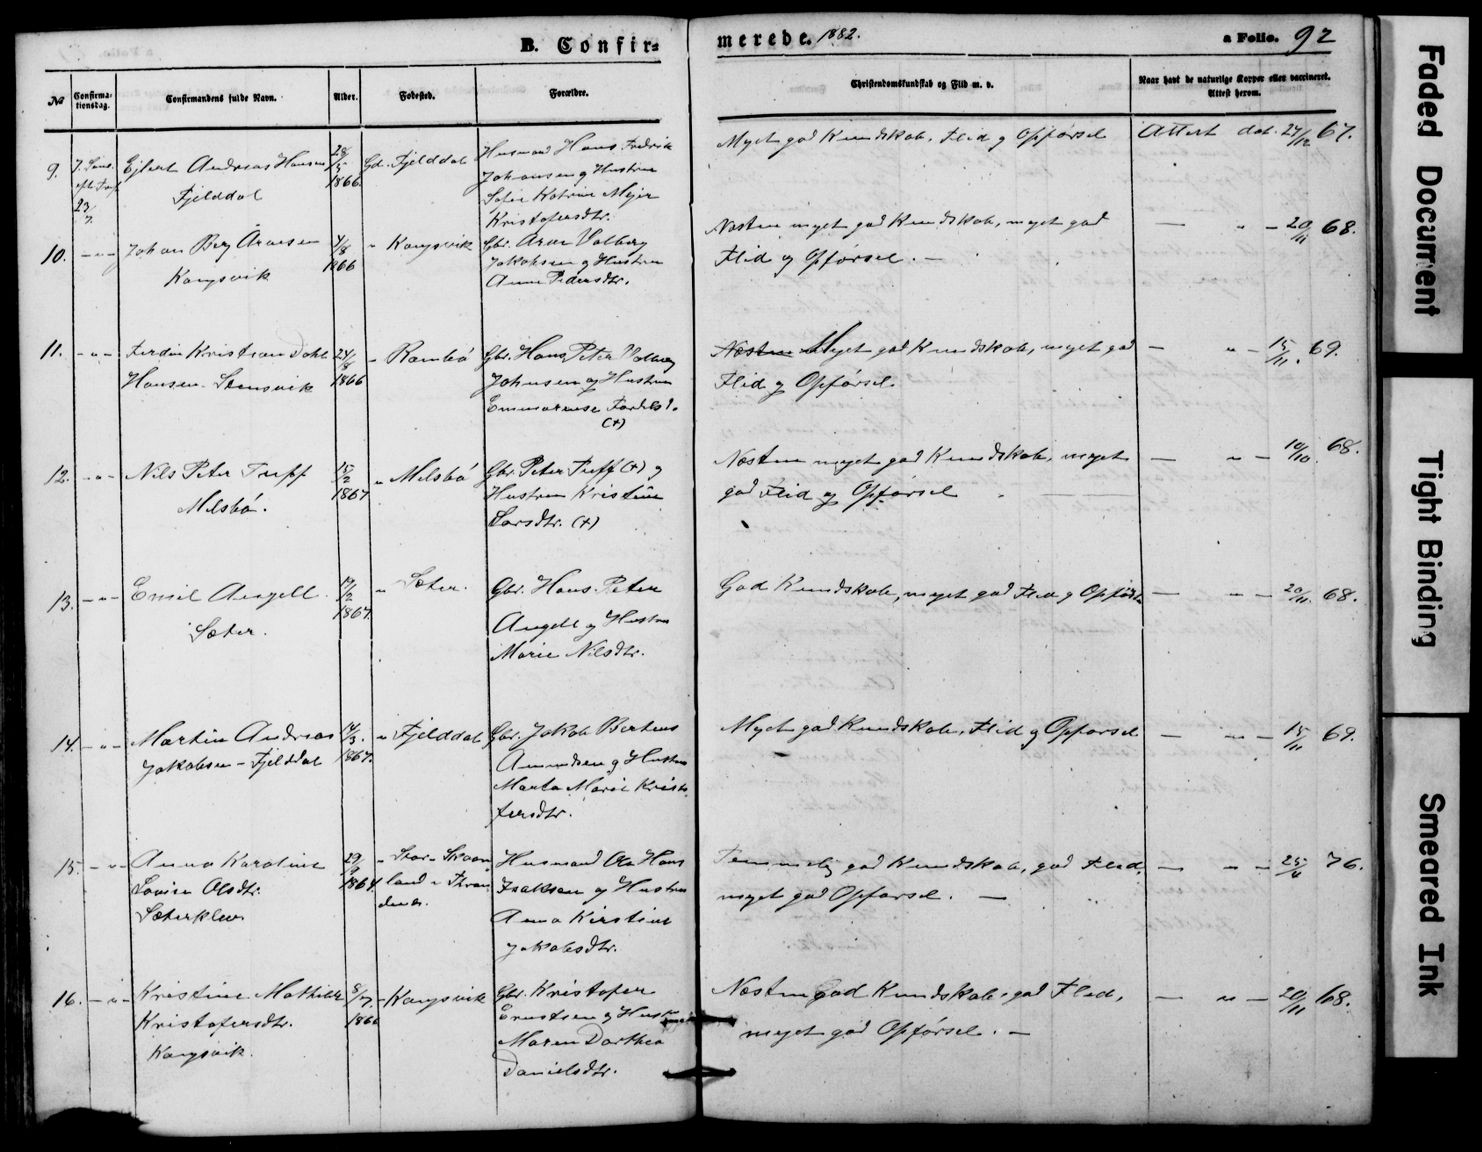 B. Confirmerede. 1882.
a Folio. 92
No
Confirmationsdag.
Confirmandens fulde Navn.
Alder.
Fødested.
Forældre.
Christendomskundskab og Flid m. v.
Naar havt de naturlige Kopper eller vaccineret. Attest herom.
9. 7. Sønd. eft. Tref. 23/7.
Ejlert Andreas Hansen
Fjelddal
28/5 1866.
Gd. Fjelddal
Husmand Hans Fredrik
Johansen og Hustru
Sofie Katrine Mejer
Kristofersdtr.
Myet god Kundskab, Flid og Opførsel
Attest dat. 27/12 67.
10. – " –
Johan Berg Arnesen
Kongsvik
4/8 1866
" Kongsvik
Gbr. Arne Volberg
Jakobsen og Hustru
Anne Pedersdtr.
Næsten myet god Kundskab, myet god
Flid og Opførsel. –
– " – 20/11 68.
11. – " –
Ferdin Kristian Dahl
Hansen – Stensvik
24/8 1866
" Rambø
Gbr. Hans Peter Volberg
Johnsen og Hustru
(+)
Næsten Myet god Kundskab, myet god
Flid og Opførsel
– " – 15/11. 69.
12. – " –
Nils Peter Tuff
Melsbø.
15/2 1867
" Melsbø
Gbr. Peter Tuff (+) og
Hustru Kristine
Larsdtr. (+)
Næsten myet god Kundskab, myet
god Flid og Opførsel
– " – 10/10. 68.
13. – " –
Emil Angell.
Sæter.
17/2 1867.
" Sæter.
Gbr. Hans Peter
Angell og Hustru
Marie Nilsdtr.
God Kundskab, myet god Flid og Opførsel
– " – 20/11. 68.
14. – " –
Martin Andreas
Jakobsen – Fjelddal
14/3. 1867.
" Fjelddal
Gbr. Jakob Berteus
Amundsen og Hustru
Marta Marie Kristofersdtr.
Myet god Kundskab, Flid og Opførsel
– " – 15/11 69.
15. – " –
Anna Karoline
Lovise Olsdtr.
Sæterkleiv
29/9 1864.
" Stor-Straumland i Trondenes.
Husmand Ole Hans
Isaksen og Hustru
Anna Kirstine
Jakobsdtr.
Temmelig god Kundskab, god Flid,
myet god Opførsel. –
– " – 25/6 76.
16. – " –
Kristine Mathilde
Kristofersdtr.
Kongsvik.
8/7 1866
– Kongsvik
Gbr. Kristofer
Ernstsen og Hustru
Maren Dorthea
Danielsdtr.
Næsten god Kundskab, god Flid,
myet god Opførsel. –
– " – 20/11 68.
Faded Document
Tight Binding
Smeared Ink